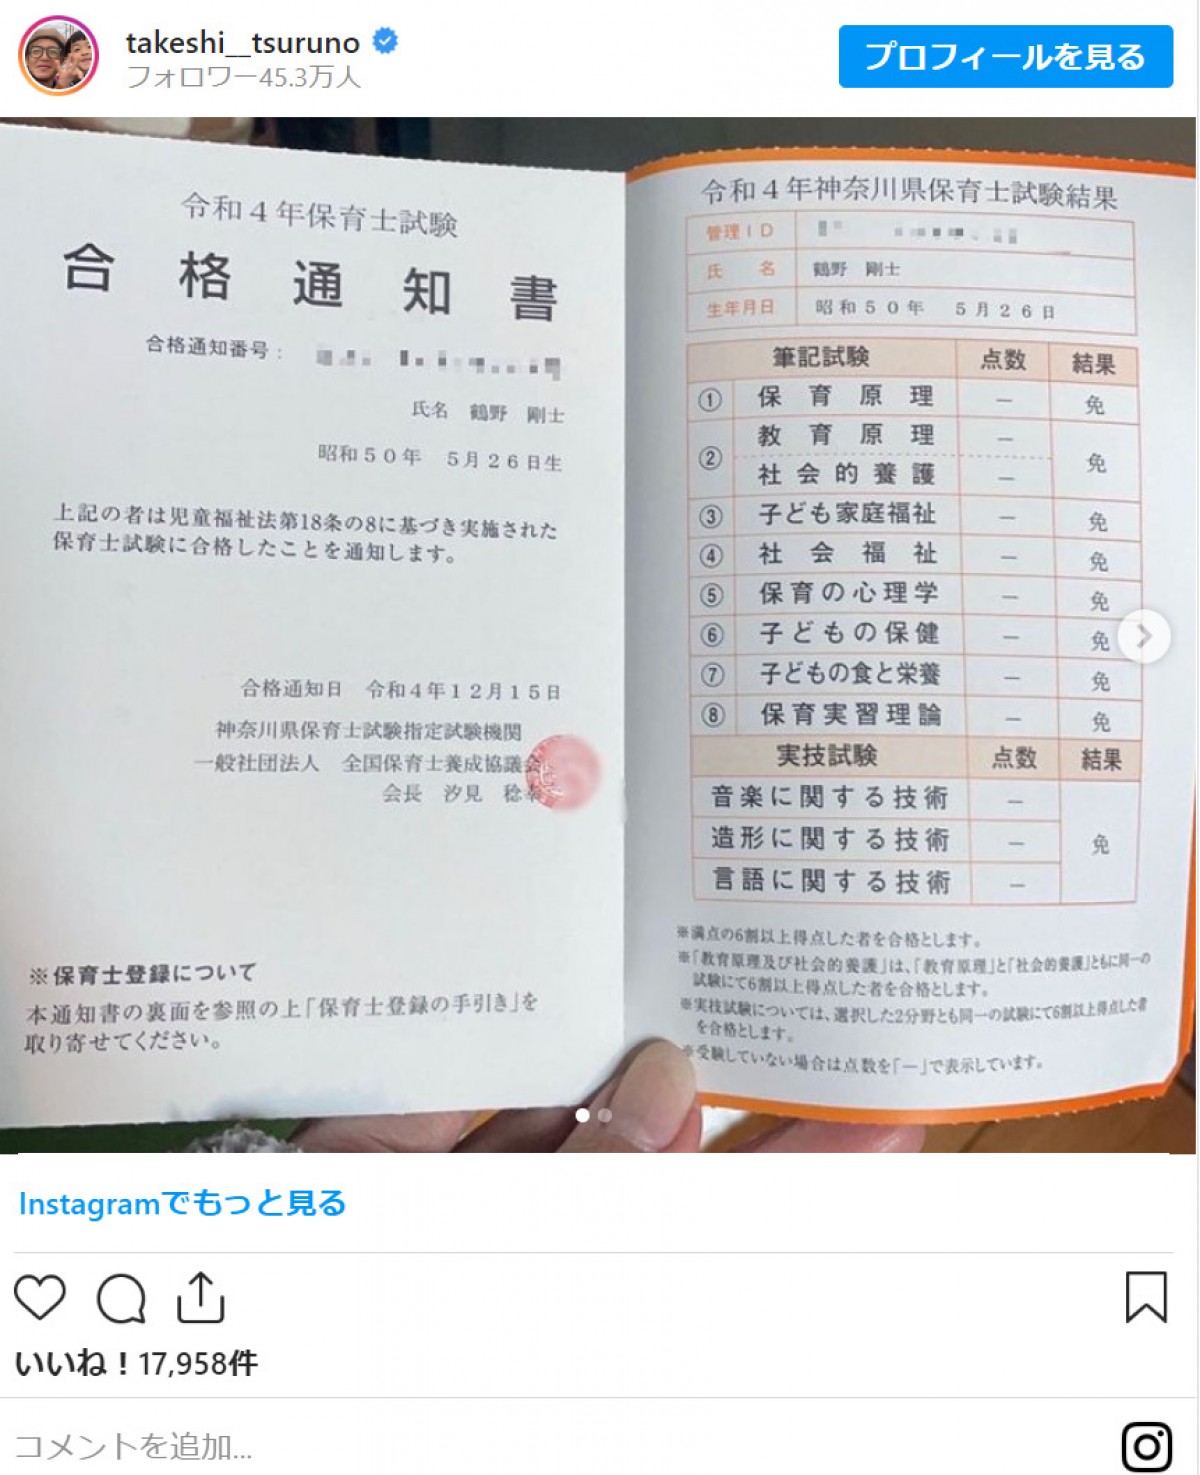 takeshi__tsuruno
フォロワー45.3万人
プロフィールを見る
令和４年保育士試験
合格通知書
合格通知番号：
氏名 鶴野 剛士
昭和５０年 ５月２６日生
上記の者は児童福祉法第18条の8に基づき実施された
保育士試験に合格したことを通知します。
合格通知日 令和４年１２月１５日
神奈川県保育士試験指定試験機関
一般社団法人 全国保育士養成協議会
会長 汐見 稔幸
※保育士登録について
本通知書の裏面を参照の上「保育士登録の手引き」を
取り寄せてください。
令和４年神奈川県保育士試験結果
管理ＩＤ
氏名 鶴野 剛士
生年月日 昭和５０年 ５月２６日
筆記試験 点数 結果
① 保育原理 － 免
② 教育原理 －
社会的養護 － 免
③ 子ども家庭福祉 － 免
④ 社会福祉 － 免
⑤ 保育の心理学 － 免
⑥ 子どもの保健 － 免
⑦ 子どもの食と栄養 － 免
⑧ 保育実習理論 － 免
実技試験 点数 結果
音楽に関する技術 －
造形に関する技術 － 免
言語に関する技術 －
※満点の6割以上得点した者を合格とします。
※「教育原理及び社会的養護」は、「教育原理」と「社会的養護」ともに同一の
試験にて6割以上得点した者を合格とします。
※実技試験については、選択した2分野とも同一の試験にて6割以上得点した者
を合格とします。
※受験していない場合は点数を「－」で表示しています。
Instagramでもっと見る
いいね！17,958件
コメントを追加...